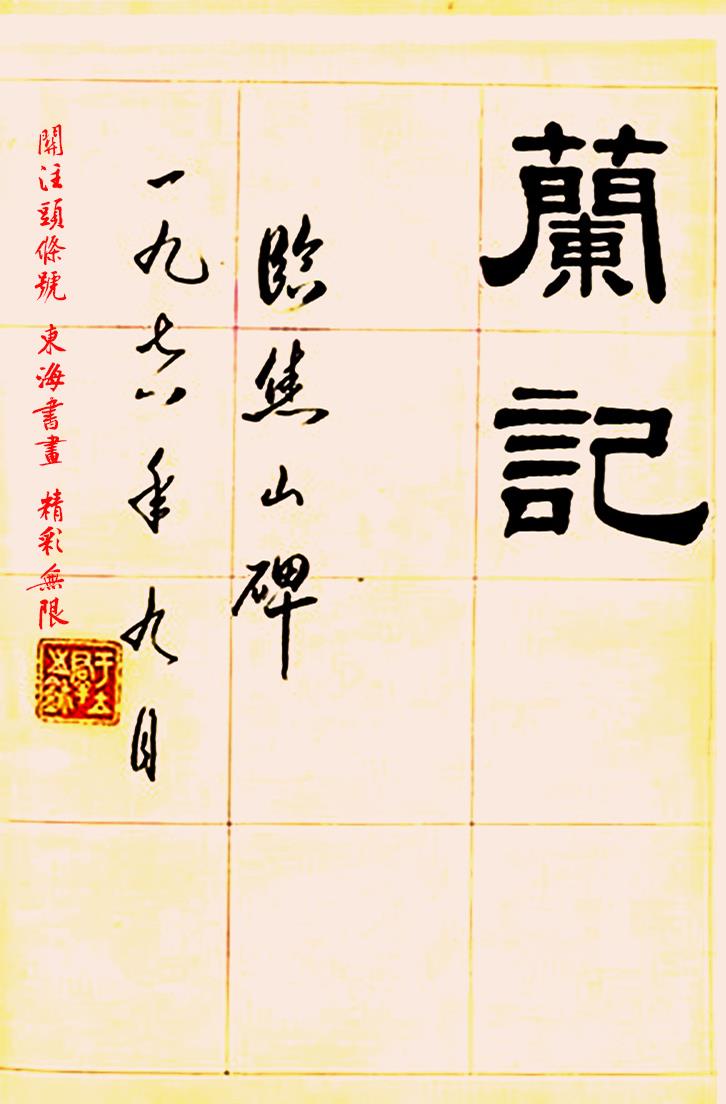 蘭記
臨焦山碑
一九七八年九月
關注頭條號 東海書畫 精彩無限